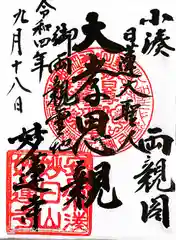 小湊 両親閣
日蓮大聖人
大孝恩親
御両親
妙蓮寺
令和四年
九月十八日